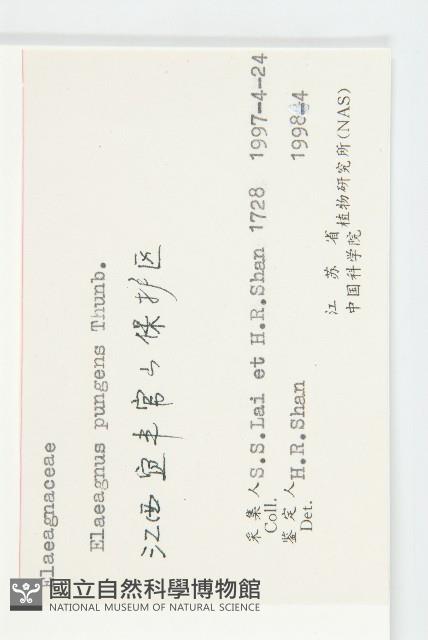 Elaeagnaceae
Elaeagnus pungens Thunb.
江西宜丰官山保护区
采集人 S.S.Lai et H.R.Shan 1728 1997-4-24
Coll.
鉴定人 H.R.Shan 1998-4
Det.
江苏省植物研究所(NAS)
中国科学院
國立自然科學博物館
NATIONAL MUSEUM OF NATURAL SCIENCE